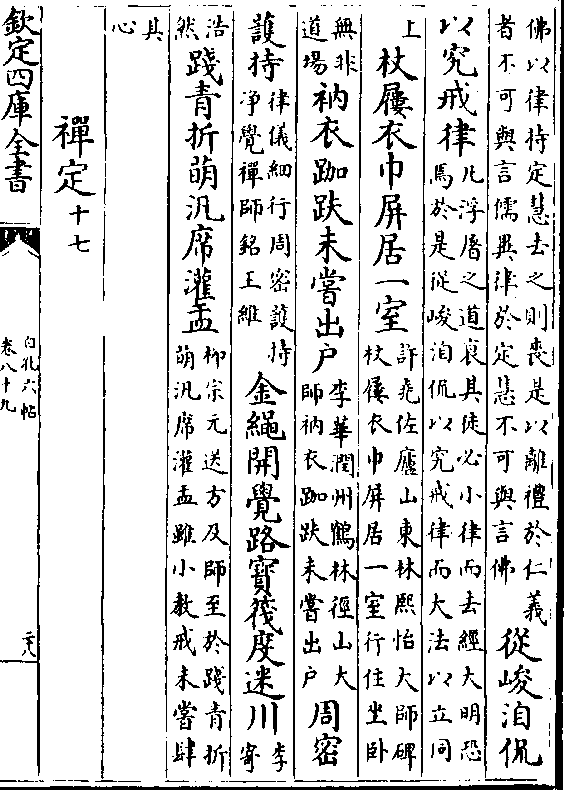 佛以律持定慧去之則喪是以離禮於仁義
者不可與言儒異律於定慧不可與言佛
從峻洎侃
以究戒律
凡浮屠之道衰其徒必小律而去經大明恐
焉於是從峻洎侃以究戒律而大法以立同
上
杖屨衣巾屏居一室
許堯佐廬山東林熙怡大師碑
杖屨衣巾屏居一室行住坐卧
無非
道場
衲衣跏趺未嘗出户
李華潤州鶴林徑山大
師衲衣跏趺未嘗出户
周密
護持
律儀細行周密護持
净覺禪師銘王維
金繩開覺路寶筏度迷川
李
寄
浩
然
踐青折萌汎席灌盂
柳宗元送方及師至於踐青折
萌汎席灌盂雖小教戒未嘗肆
其
心
禪定十七
欽定四庫全書
白孔六帖
卷八十九